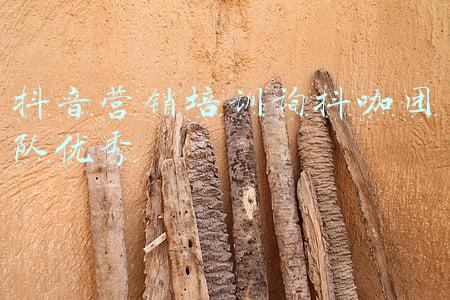 抖音营销培训询抖咖团
队优秀